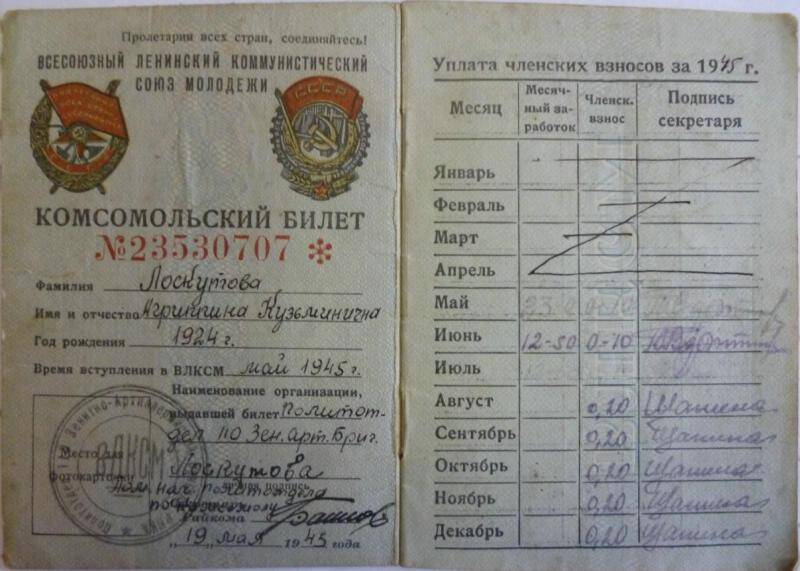 Пролетарии всех стран, соединяйтесь!
ВСЕСОЮЗНЫЙ ЛЕНИНСКИЙ КОММУНИСТИЧЕСКИЙ
СОЮЗ МОЛОДЕЖИ
СССР
КОМСОМОЛЬСКИЙ БИЛЕТ
№23530707
Фамилия Лоскутова
Имя и отчество Агриппина Кузьминична
Год рождения 1924 г.
Время вступления в ВЛКСМ май 1945 г.
Наименование организации,
выдавшей билет Политот-
дел 110 Зен. арт. Бриг.
Место для
Фотокарточки
Лоскутова
личная подпись
Пом нач политотдела
по комсомолу
Райкома
"19" мая 1945 года
ВЛКСМ
Уплата членских взносов за 1945 г.
Месяц Месяч-ный за-работок Членск. взнос Подпись секретаря
Январь
Февраль
Март
Апрель
Май 0-10
Июнь 12-50 0-70
Июль
Август 0,20 Шашена
Сентябрь 0,20
Октябрь 0,20
Ноябрь 0,20
Декабрь 0,20